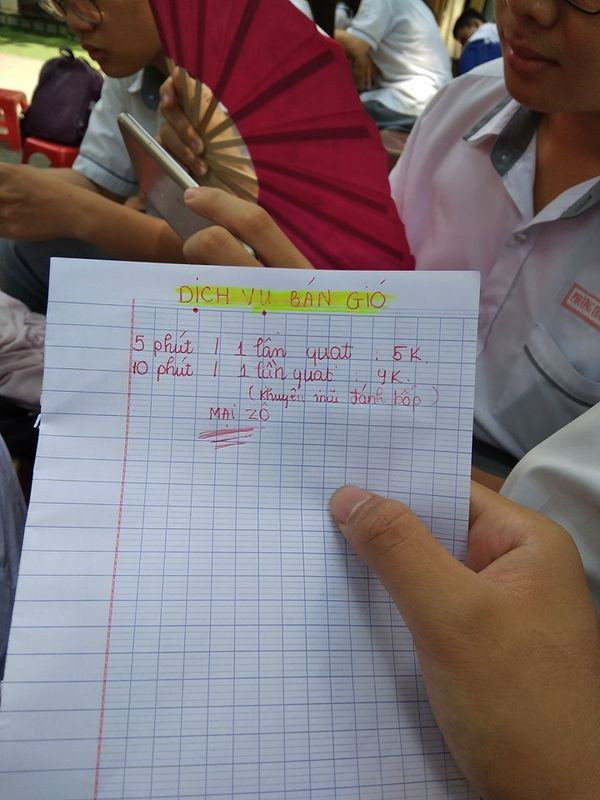 DỊCH VỤ BÁN GIÓ
5 phút / 1 lần quạt : 5K
10 phút / 1 lần quạt : 9K.
(khuyến mãi đánh bốp)
MẠI ZÔ